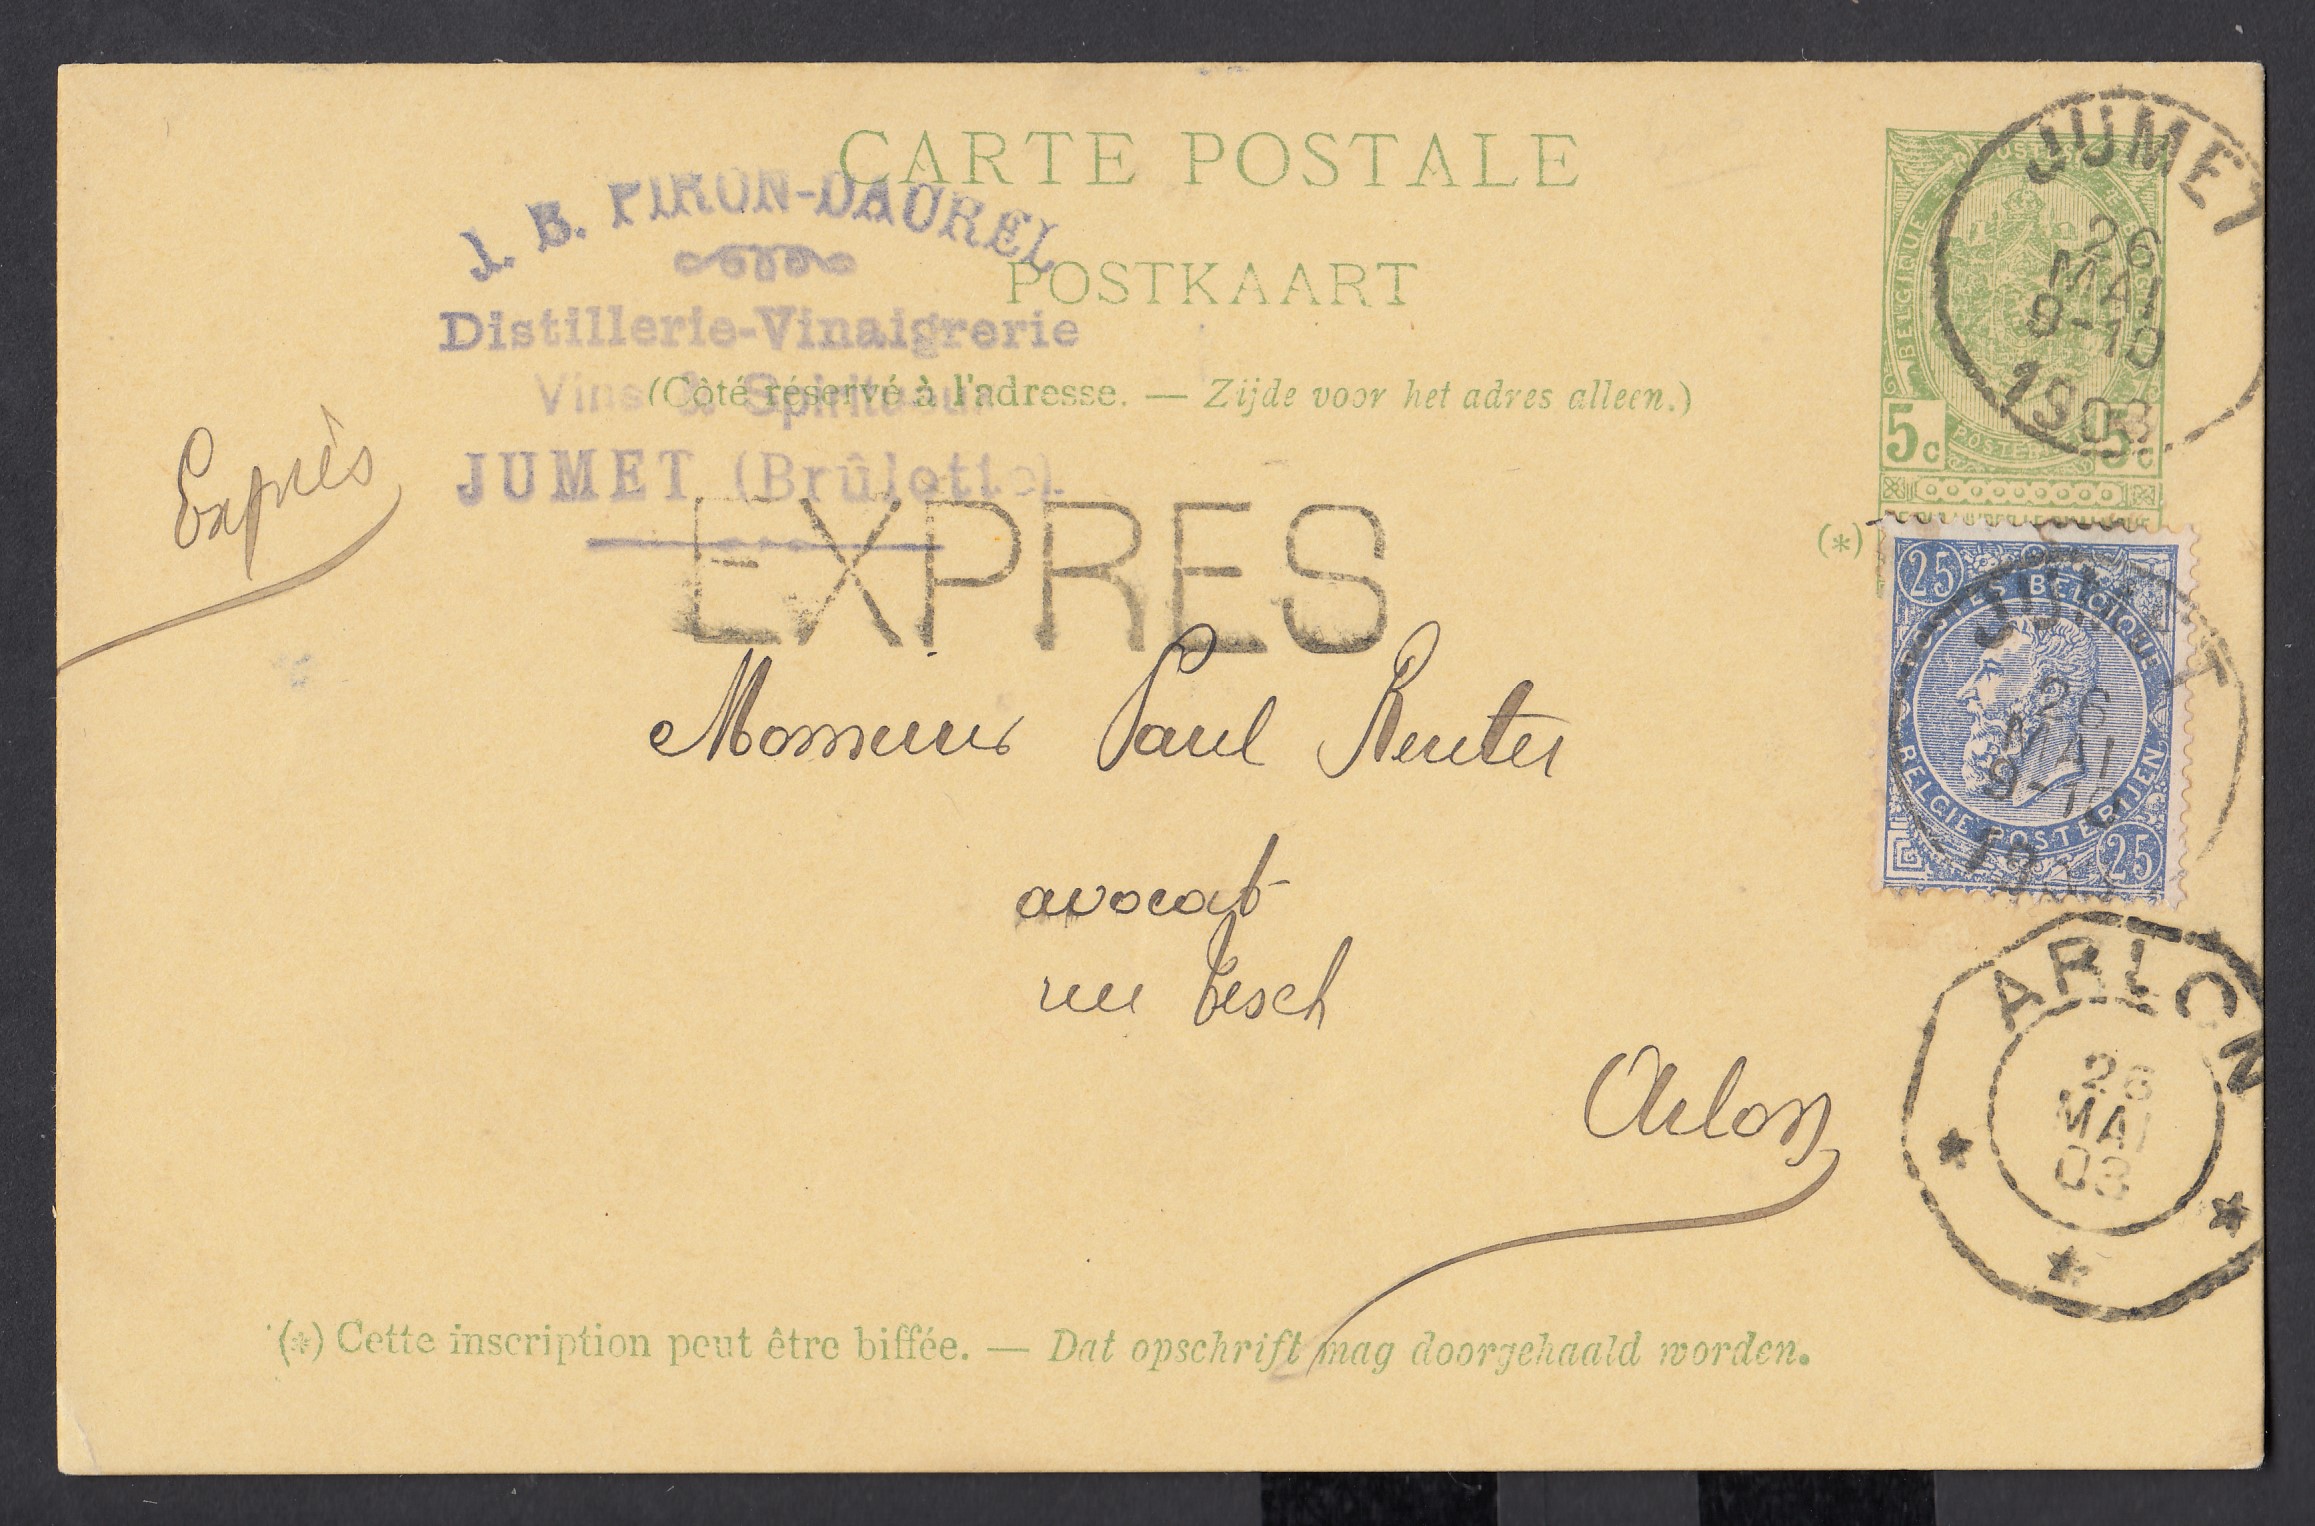 CARTE POSTALE
J. B. PIRON-DAUREL
POSTKAART
Distillerie-Vinaigrerie
Vins & Spiritueux
(Côté réservé à l'adresse. — Zijde voor het adres alleen.)
JUMET (Brûlotte)
Exprès
EXPRES
Monsieur Paul Reuter
avocat
rue Tesch
Arlon
(*)
BELGIQUE
5c 5c
JUMET
26
MAI
9-10
1903
25
POSTES BELGIQUE
BELGIE POSTERIJEN
25
JUMET
26
MAI
9-10
ARLON
26
MAI
03
(*) Cette inscription peut être biffée. — Dat opschrift mag doorgehaald worden.